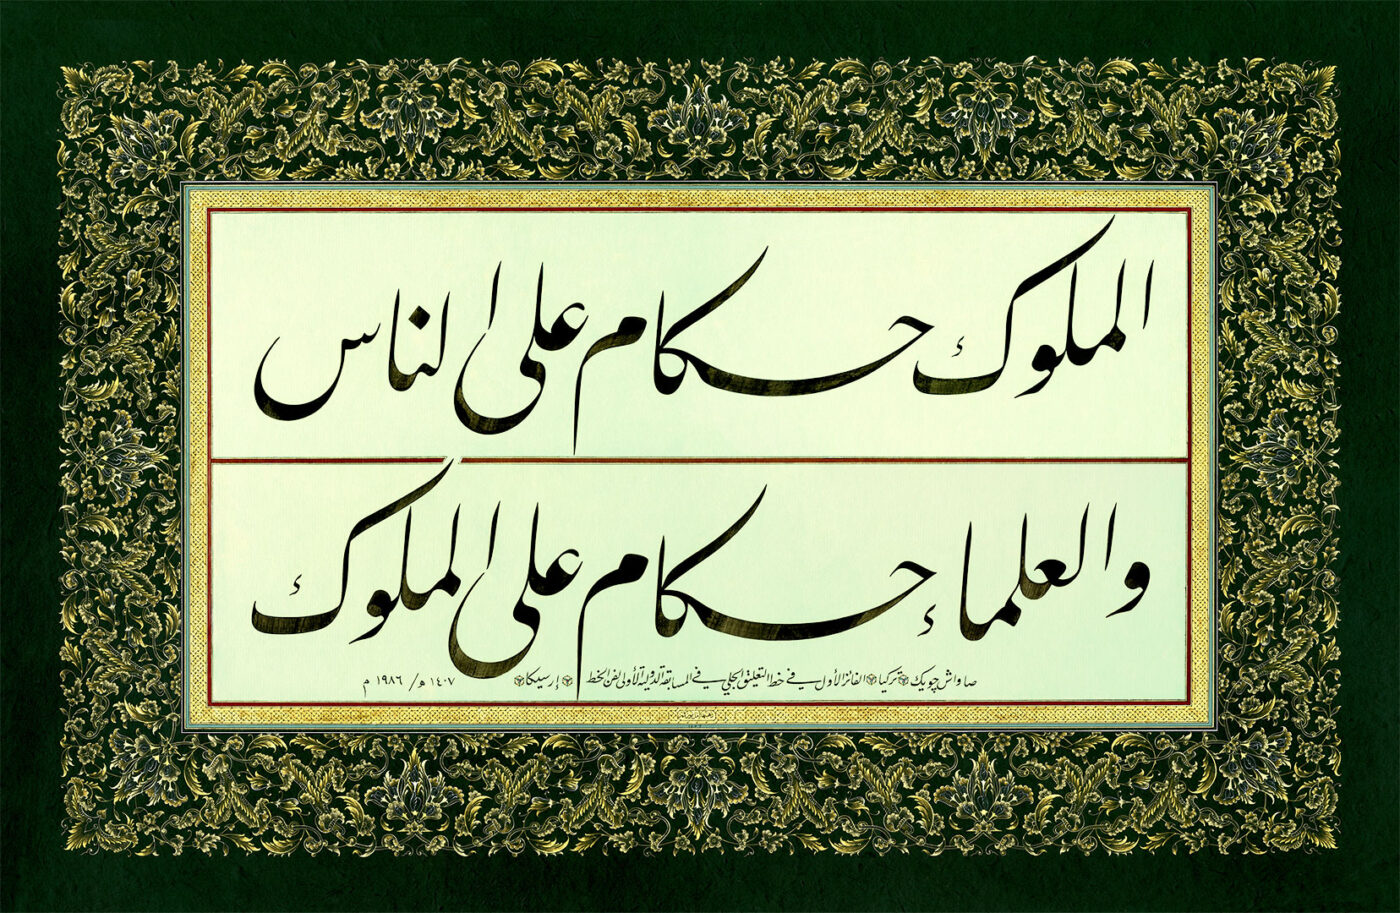 الملوك حكام على الناس
والعلماء حكام على الملوك
صاواش چويك تركيا الفائز الأول في خط التعليق الجلي في المسابقة الدولية الأولى لفن الخط إرسيكا ١٤٠٧ ھ/ ١٩٨٦ م